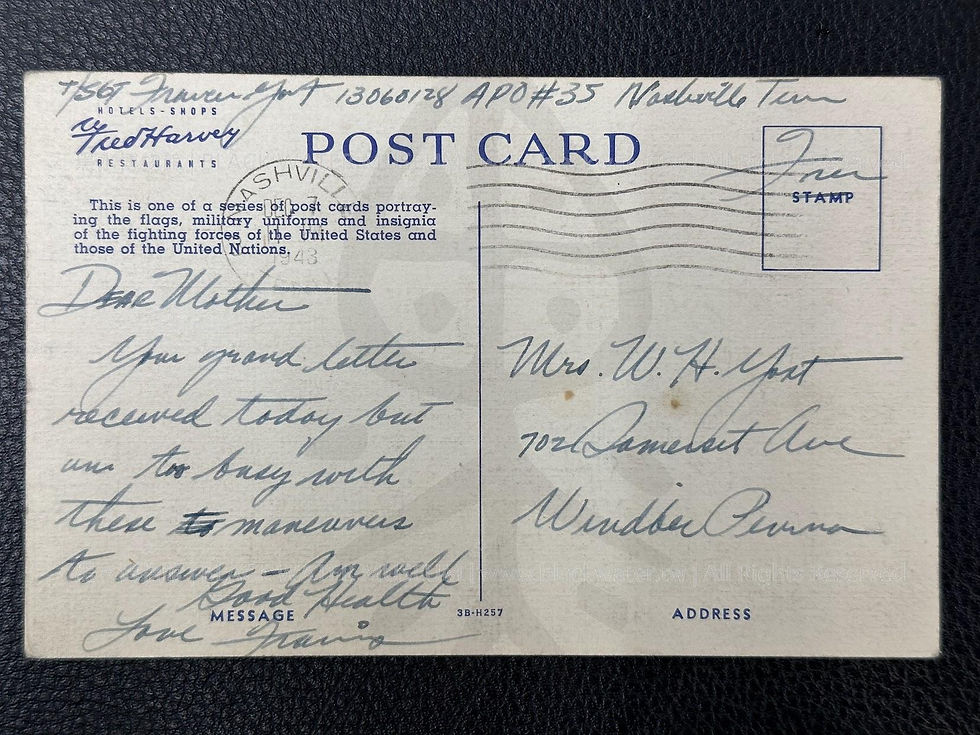 T/Sgt Yost 13060128 APO #35 Nashville Tenn
HOTELS-SHOPS
Fred Harvey
RESTAURANTS
POST CARD
Free
STAMP
NASHVILL
DEC 7
1943
This is one of a series of post cards portray-
ing the flags, military uniforms and insignia
of the fighting forces of the United States and
those of the United Nations.
Dear Mother
Your grand letter
received today but
am too busy with
these maneuvers
to answer - Am well
Good Health
Love Travis
Mrs. W. H. Yost
702 Somerset Ave
Windber Penna
MESSAGE
3B-H257
ADDRESS
All Rights Reserved